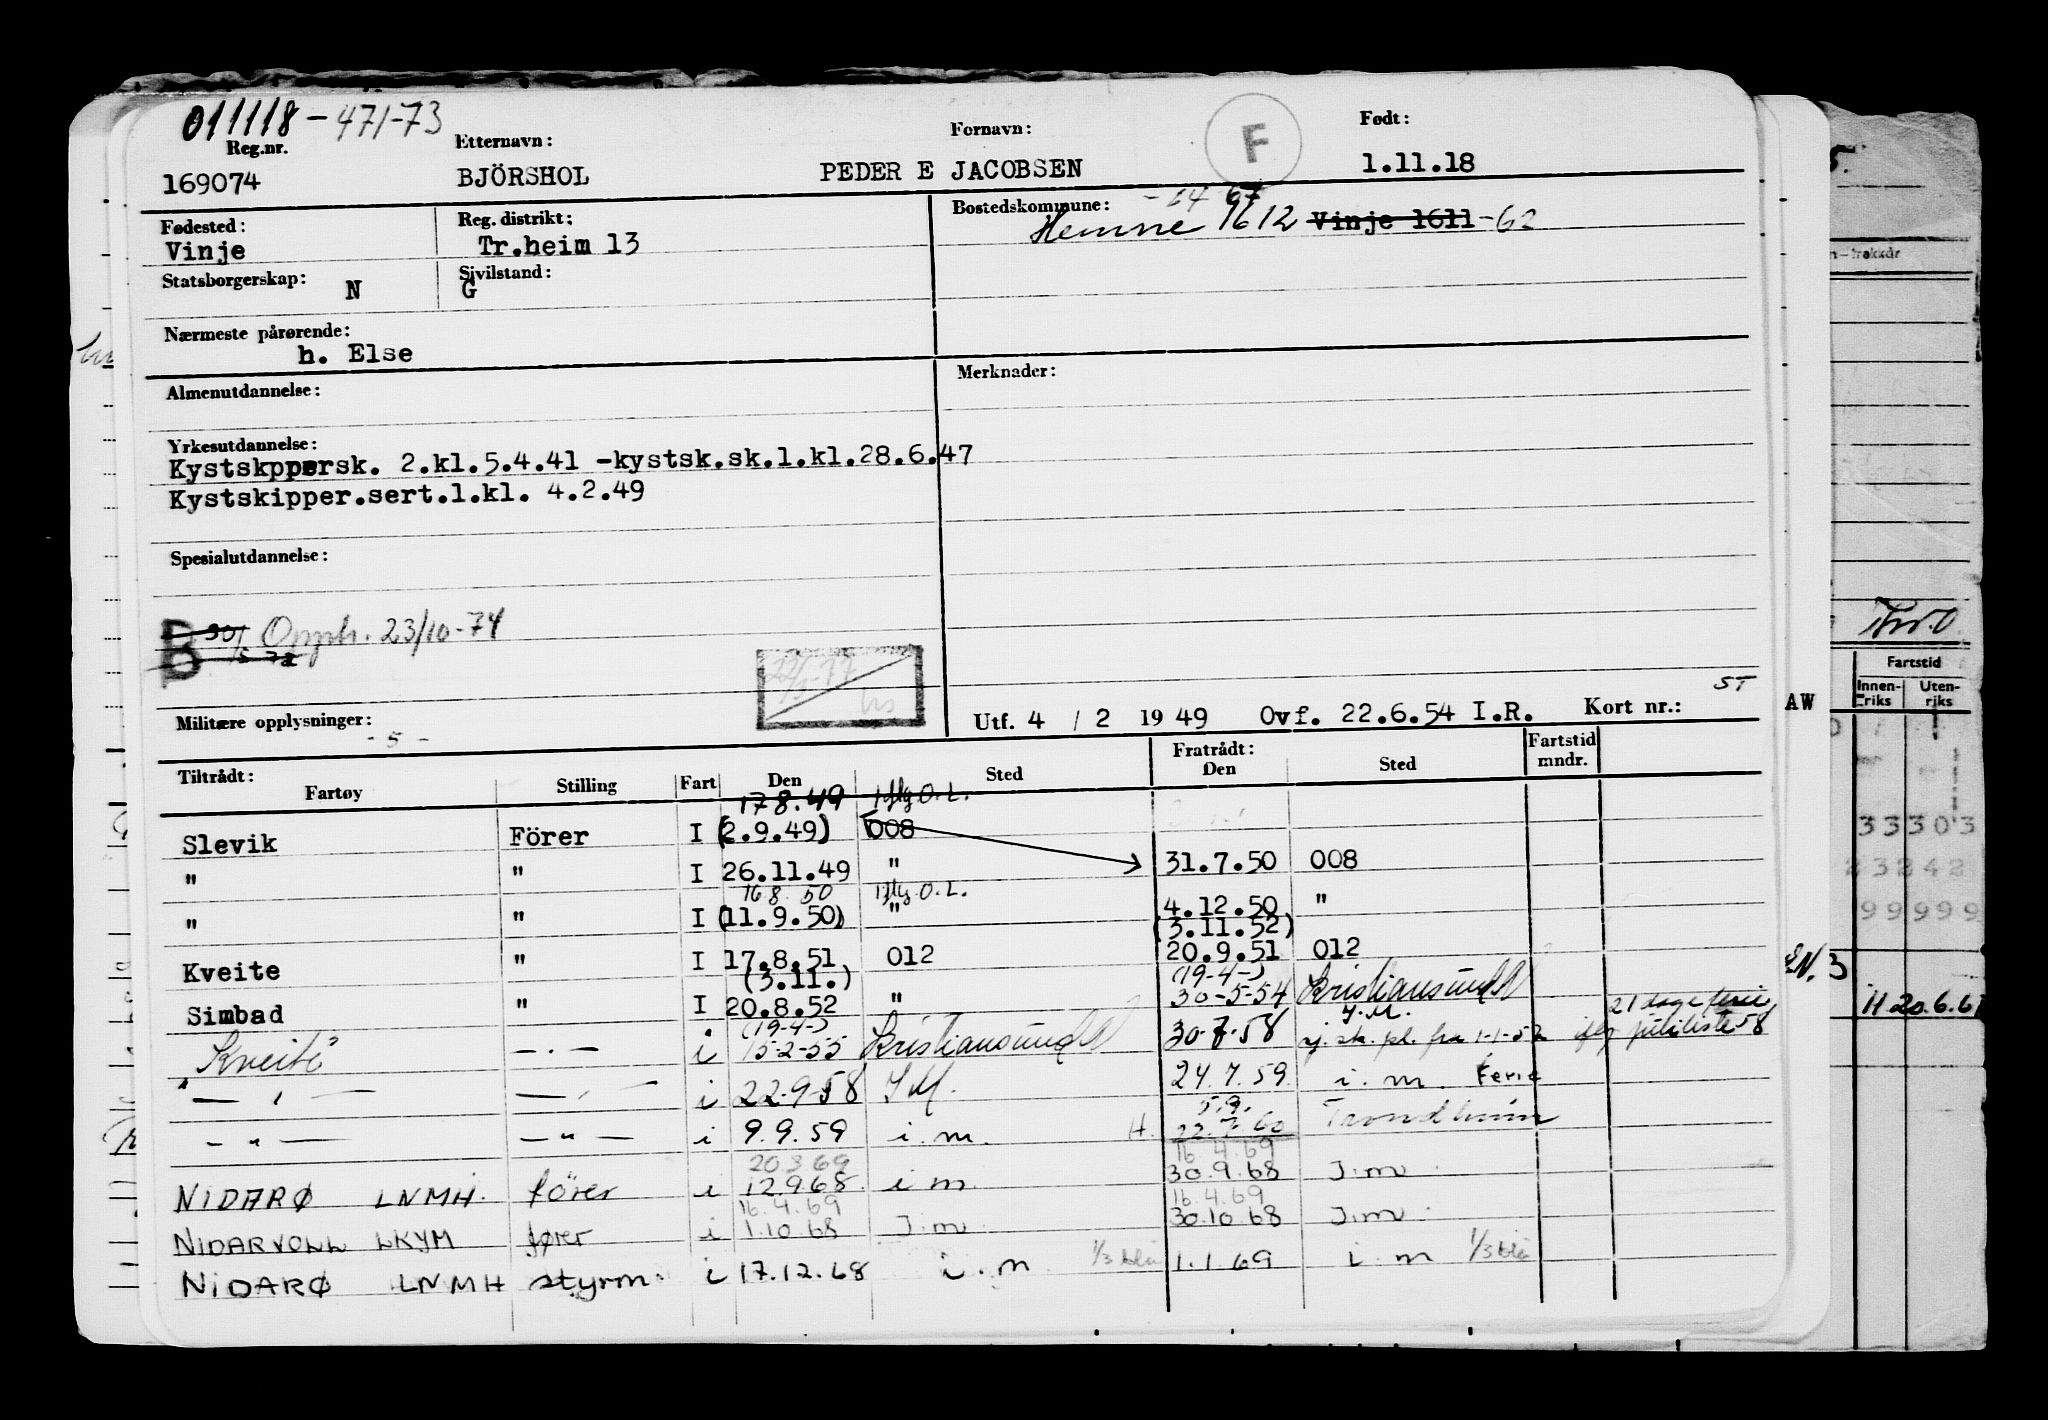 011118-471-73
Reg.nr. Etternavn: Fornavn: F Født:
169074 BJÖRSHOL PEDER E JACOBSEN 1.11.18
Fødested: Reg. distrikt: Bostedskommune: -64 67
Vinje Tr.heim 13 Hemne 1612 Vinje 1611 -62
Statsborgerskap: N Sivilstand: G
Nærmeste pårørende:
h. Else
Almenutdannelse: Merknader:
Yrkesutdannelse:
Kystskppersk. 2.kl.5.4.41 -kystsk.sk.1.kl.28.6.47
Kystskipper.sert.1.kl. 4.2.49
Spesialutdannelse:
B Opph. 23/10-74
Militære opplysninger: Utf. 4 / 2 19 49 Ovf. 22.6.54 I.R. Kort nr.: ST
- 5 -
Tiltrådt: Fratrådt: Fartstid
Fartøy Stilling Fart Den Sted Den Sted mndr.
17.8.49 iflg O.L.
Slevik Förer I (2.9.49) 008
" " I 26.11.49 " 31.7.50 008
16.8.50 iflg O.L.
" " I (11.9.50) " 4.12.50 "
(3.11.52)
Kveite " I 17.8.51 012 20.9.51 012
(3.11.) (19-4-)
Simbad " I 20.8.52 " 30-5-54 Kristiansund N
(19-4-) I.M. 21 dage ferie
"Kveite" -.- i 15-2-55 Kristiansund N 30-7-58 fra 1-1-57 iflg juliliste 58
" — " — — " — i 22-9-58 I M. 24.7.59 i.m. Ferie
5.9.
— " — — " — i 9.9.59 i.m. H. 22.7.60 Trondheim
20.3.69 16.4.69
NIDARØ LNMH. förer i 12.9.68. i m. 30.9.68 I.m.
16.4.69 16.4.69
NIDARVOLL LKYM fører i 1.10.68 I.m. 30.10.68 I.m.
NIDARØ LNMH styrm. i 17.12.68 i.m. 1/3 blå 1.1.69 i.m 1/3 blå
AW
Fartstid
Innen-riks Uten-riks
H 20.6.61